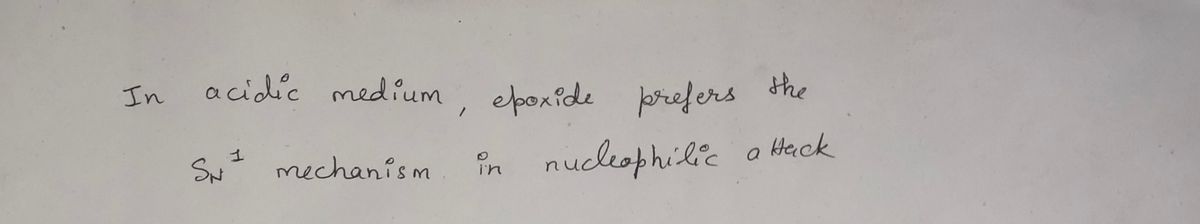 In acidic medium, epoxide prefers the
SN¹ mechanism in nucleophilic attack